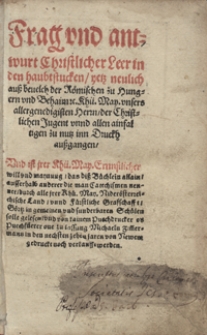 Frag vnd ant-
wurt Christlicher Leer in
den haubtstucken / yetz neulich
auß beuelch der Römischen zu Hun-
gern vnd Behaim ꝛc. Khü. May. vnsers
allergenedigisten Herrn / der Christ-
lichen Jugent vnnd allen ainfal-
tigen zu nutz inn Druckh
außgangen /
Vnd ist jrer Khü. May. Ernstlicher
will vnd maynung / das diß Büchlein allain /
ausserhalb anderer die man Catechismen nen-
net / durch alle jrer Khü. May. Niderösterrei-
chische Land / vnnd Fürstliche Graffschafft
Görtz in gemeinen vnd sunderbaren Schulen
solle gelesen / vnd von kainem Puechdrucker
Puechfürer on zu lassung Michaeln Zimer-
mann in den nechsten zehen jaren von Newem
gedruckt noch verkaufft werden.